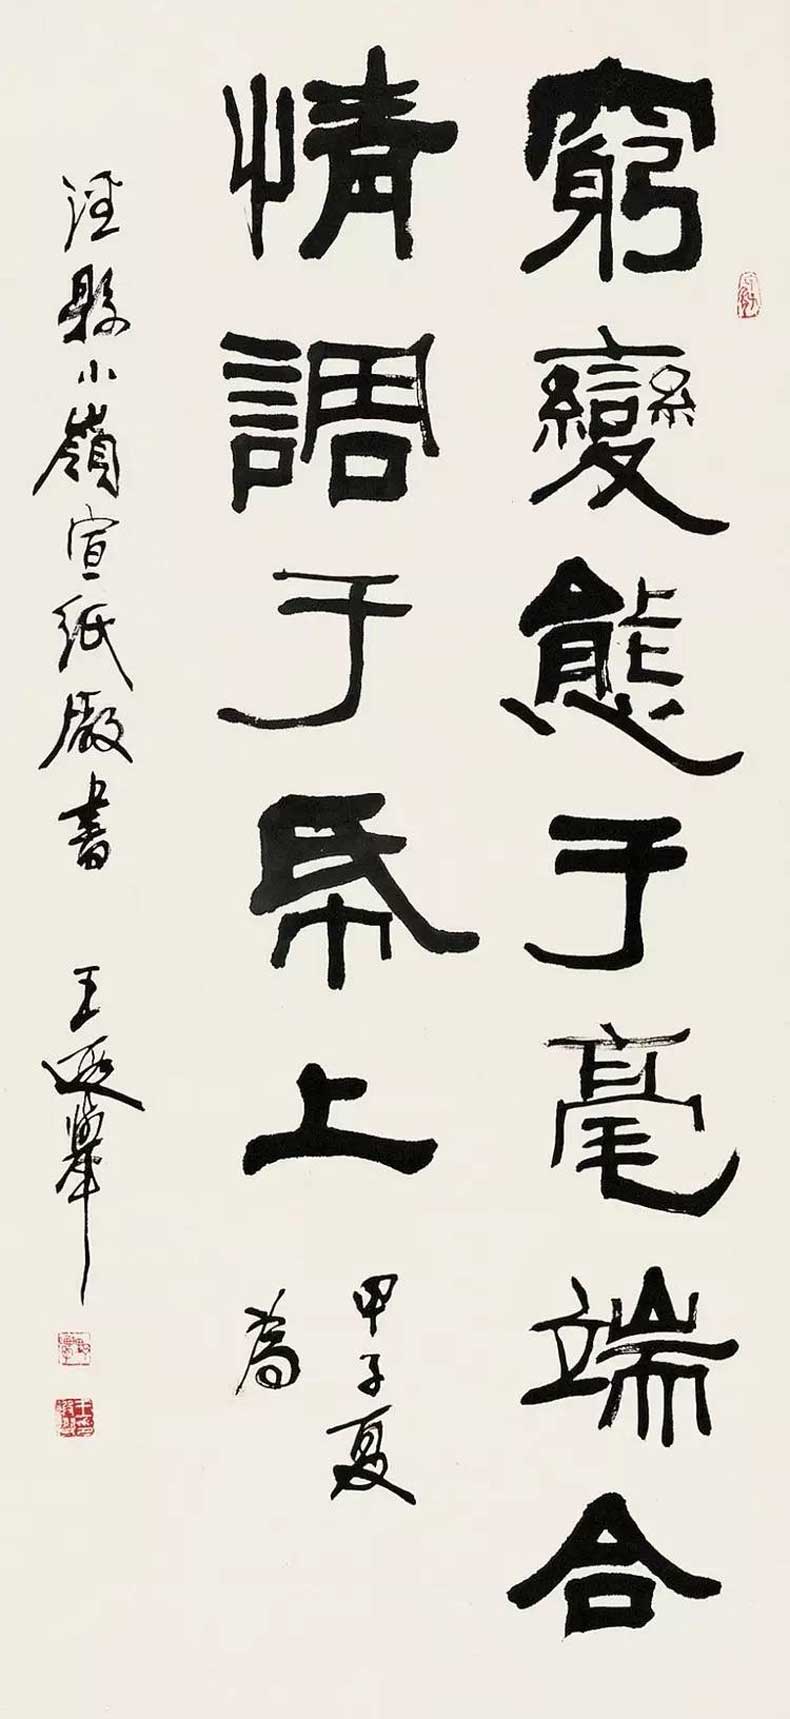 窮變態于毫端合
情調于帋上
甲子夏
為
涇縣小嶺宣紙廠書 王遐舉